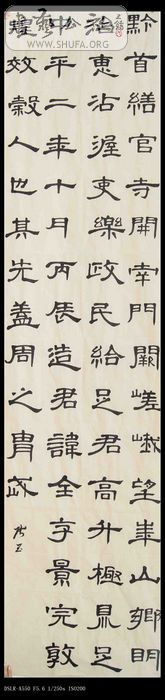 WWW.SHUFA.ORG
黔首繕官寺開南門闕嵯峨望華山鄉明
治惠沾渥吏樂政民給足君高升極鼎足
中平二年十月丙辰造君諱全字景完敦
煌效穀人也其先蓋周之胄武
DSLR-A550 F5.6 1/250s ISO200